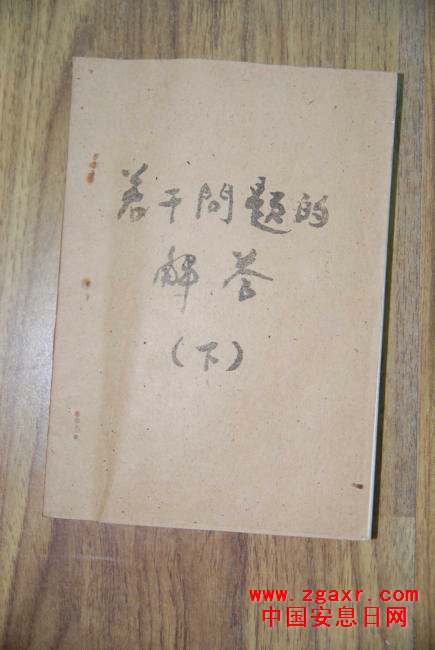 若干問题的
解答
（下）
www.zgaxr.com
中国安息日网